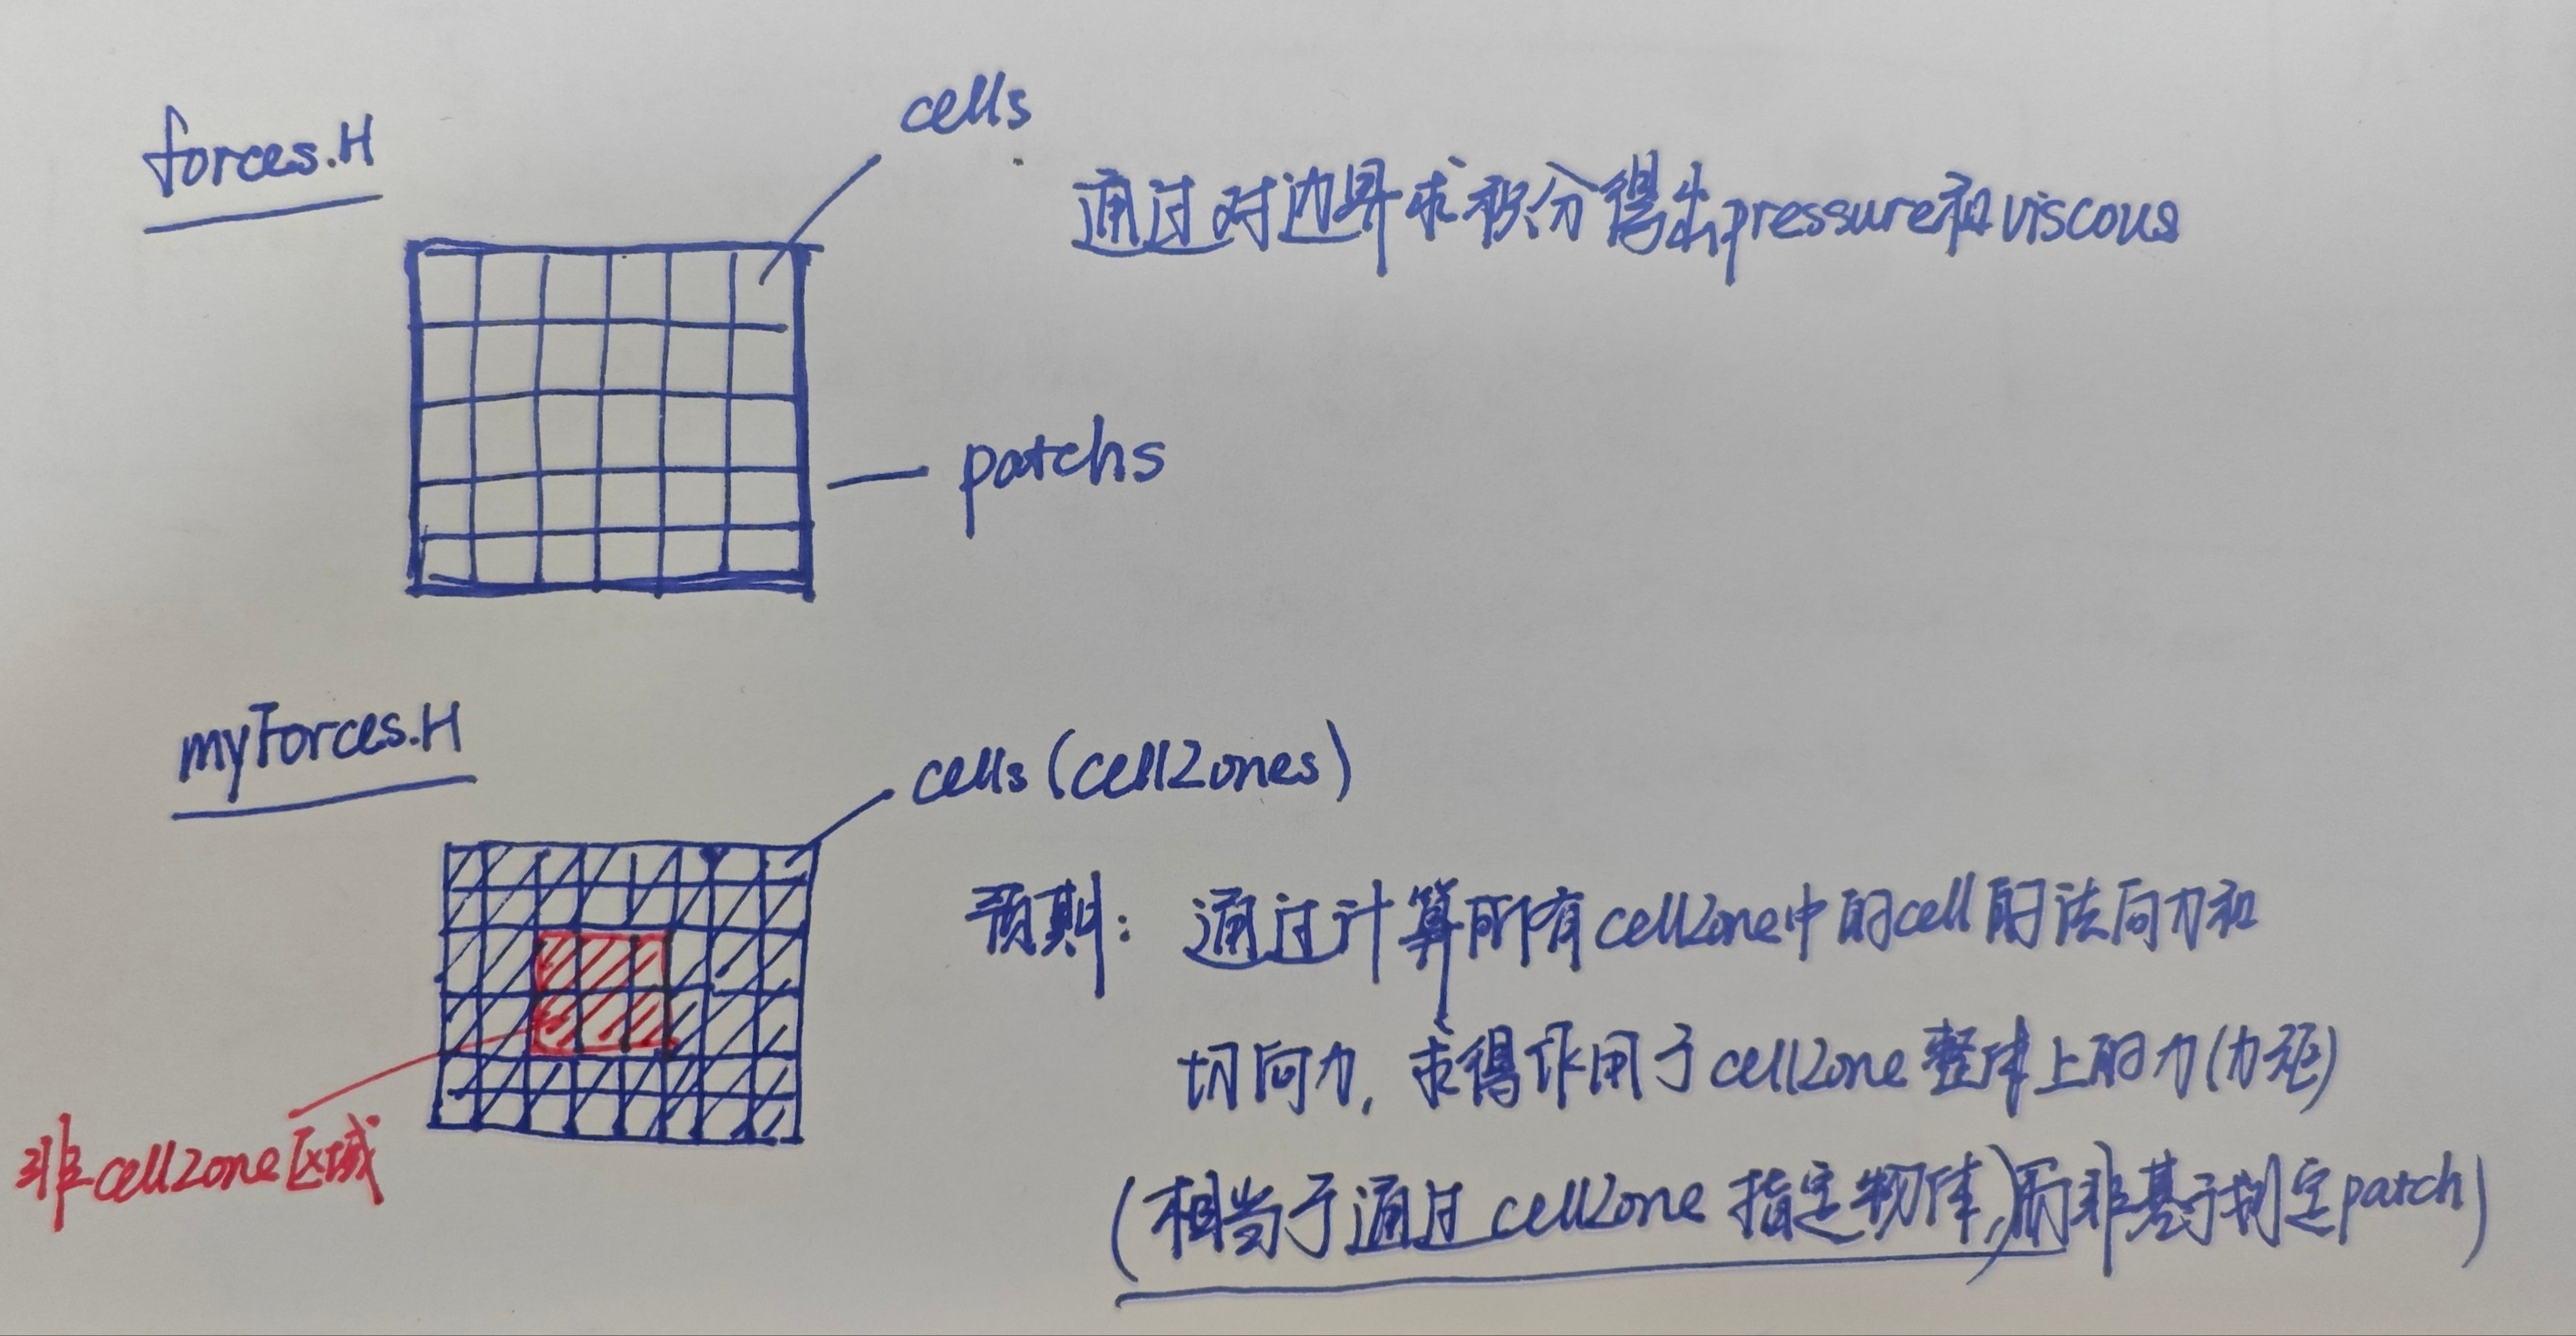 forces.H
cells
通过对边界求积分得出pressure和viscous
patchs
myForces.H
cells (cellZones)
预期: 通过计算所有cellZone中的cell的法向力和
切向力, 求得作用于cellZone整体上的力(力矩)
(相当于通过cellZone指定物体,)而非基于制定patch)
非cellzone区域